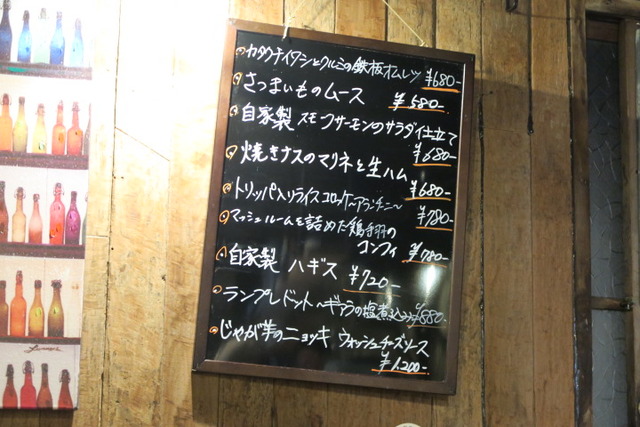 カタクチイワシとクルミの鉄板オムレツ ¥680-
さつまいものムース ¥580-
自家製 スモークサーモンのサラダ仕立て
¥680-
焼きナスのマリネと生ハム
¥680-
トリッパ入りライスコロッケ〜アランチーニ〜
¥780-
マッシュルームを詰めた鶏手羽の
コンフィ ¥780-
自家製 ハギス ¥720-
ランプレドット〜ギアラの塩煮込み〜 ¥880-
じゃが芋のニョッキ ウォッシュチーズソース
¥1,200-